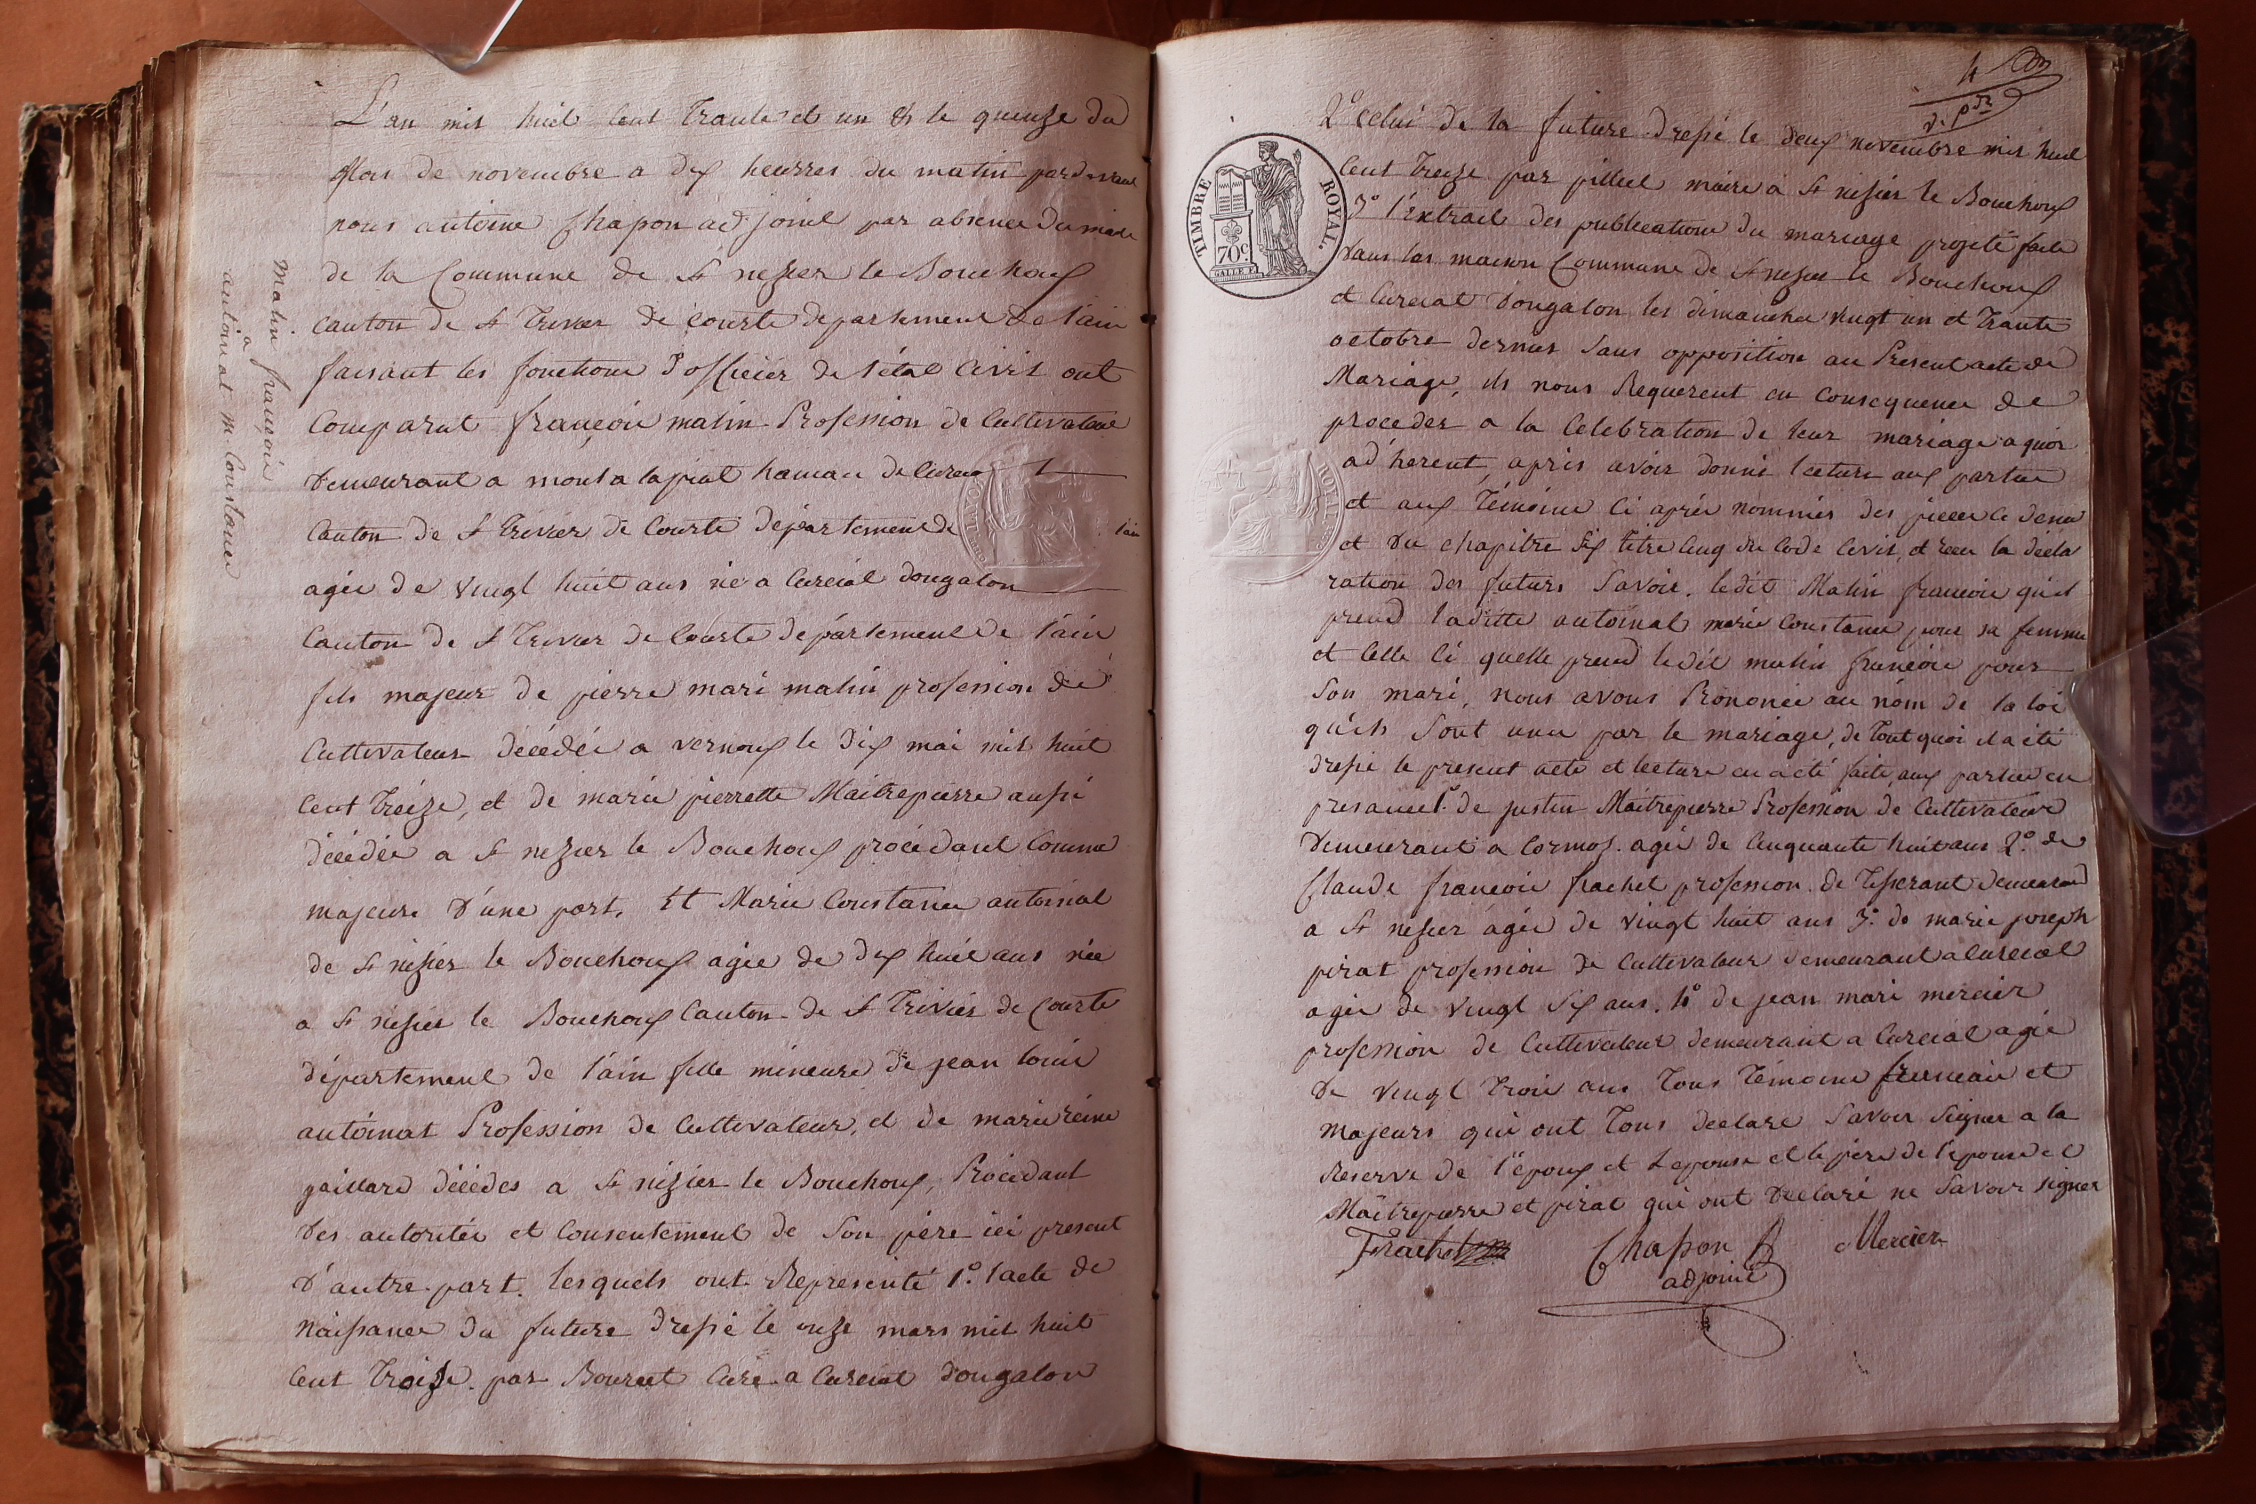 L'an mil huil Cent Trante et un & le quinze du
Mois de novembre a dix heurres du matin pardevant
nous antoine Chapon adjoint par absence du maire
de la Commune de St nizier le Bouchoux
Canton de St Trivier de Courte departement de l'ain
faisant les fonctions d'officier de l'état Civil ont
Comparut françois malin Profession de Cultivateur
Demeurant a
Canton de St Trivier de Courte département de l'ain
agée de vingt huit ans né a Curcial dongalon
Canton de St Trivier de Courte département de l'ain
fils majeur de pierre mari malin profession de
Cultivateur décédée a vernoux le dix mai mil huit
Cent treize, et de marie pierrette Maitrepierre aussi
décédée a St nezier le Bouchoux procédant Comme
majeure d'une part. Et Marie Constance antoinat
de St nizier le Bouchoux agée de dix huit ans née
a St nizier le Bouchoux Canton de St Trivier de Courte
département de l'ain fille mineure de jean louis
antoinat Profession de Cultivateur, et de marie reine
gaillard décédes a St nizier le Bouchoux, Procédant
Des autorités et Consentement de Son père ici present
D'autre part. lesquels ont Representé 1.° l'acte de
Naissance du future dressé le onze mars mil huit
Cent Troize par Bourcet Curé a Curciat dongalon
malin françois
a
antoinat m. Constance
4
2° Celui de la future dressé le deux novembre mil huil
Cent Treize par pilliel maire a St nizier le Bouchoux
3° l'Extrail des publications du mariage projeté faite
dans las maison Commune de St nizier le Bouchoux
et Curciat dongalon les dimanche vingt un et Trante
octobre dernier Sans opposition au Present acte de
Mariage, ils nous Requerent en Consequence de
proceder a la Célébration de leur mariage a quoi
ad'hérent, après avoir donné lecture aux parties
et aux Témoins Ci après nommés des pieces Ci dessu
et du chapitre Six titre Cinq du Code Civil, et recu la décla
ration des futurs Savoir. ledit Malin françois qu'il
prend laditte antoinat marie Constance pour sa femme
et Celle Ci quelle prend ledit malin françois pour
Son mari, nous avons Prononcé au nom de la loi
qu'ils Sont unis par le mariage, de tout quoi il a été
dressé le present acte et lecture en a été faite aux parties en
presance 1° de justin Maitrepierre Profession de Cultivateur
Demeurant a Cormoz agée de Cinquante huit ans 2° de
Claude françois frachet profession de Tisserant demeurand
a St nezier agée de vingt huit ans 3° de marie joseph
pirat profession de Cultivateur demeurant a Curcial
agée de vingt Six ans. 4° de jean mari mercier
profession de Cultivateur demeurant a Curcial agée
de vingt trois ans Tous Témoins francais et
majeurs qui ont Tous declaré Savoir Signer a la
Reserve de l'epoux et l'epouse et le père de l'epouse et
Maitrepierre et pirat qui ont declaré ne Savoir signer
Frachet Chapon Mercier
adjoint
TIMBRE ROYAL.
70c.